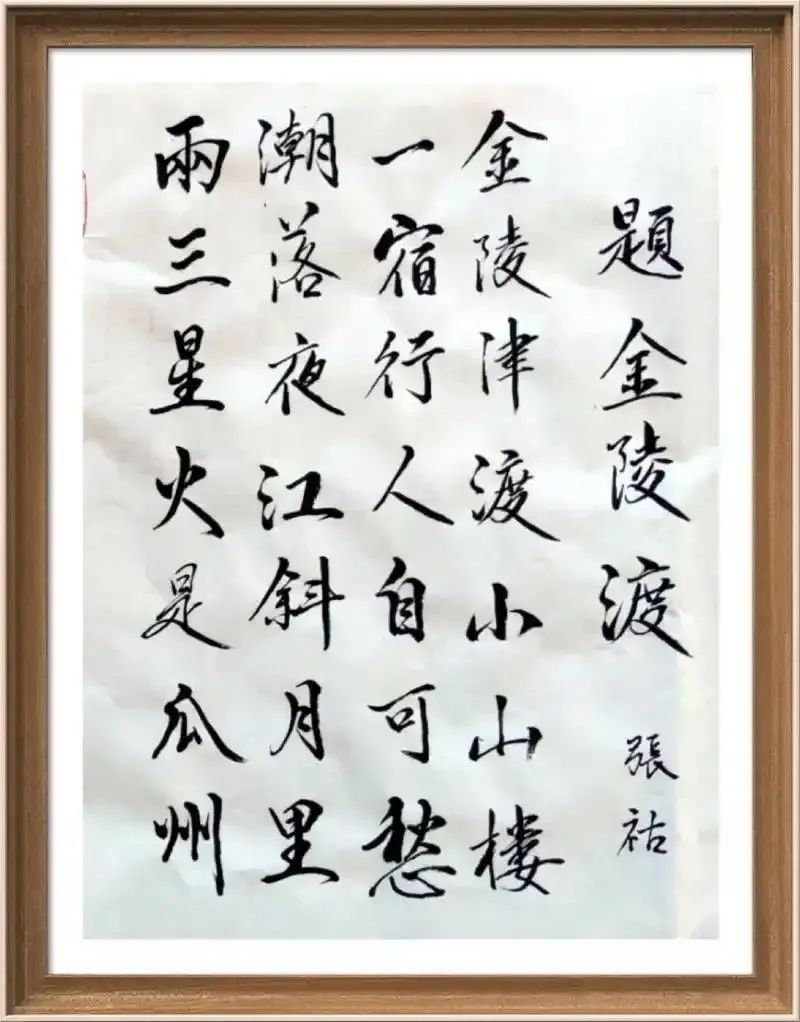 題金陵渡 張祜
金陵津渡小山楼
一宿行人自可愁
潮落夜江斜月里
兩三星火是瓜州